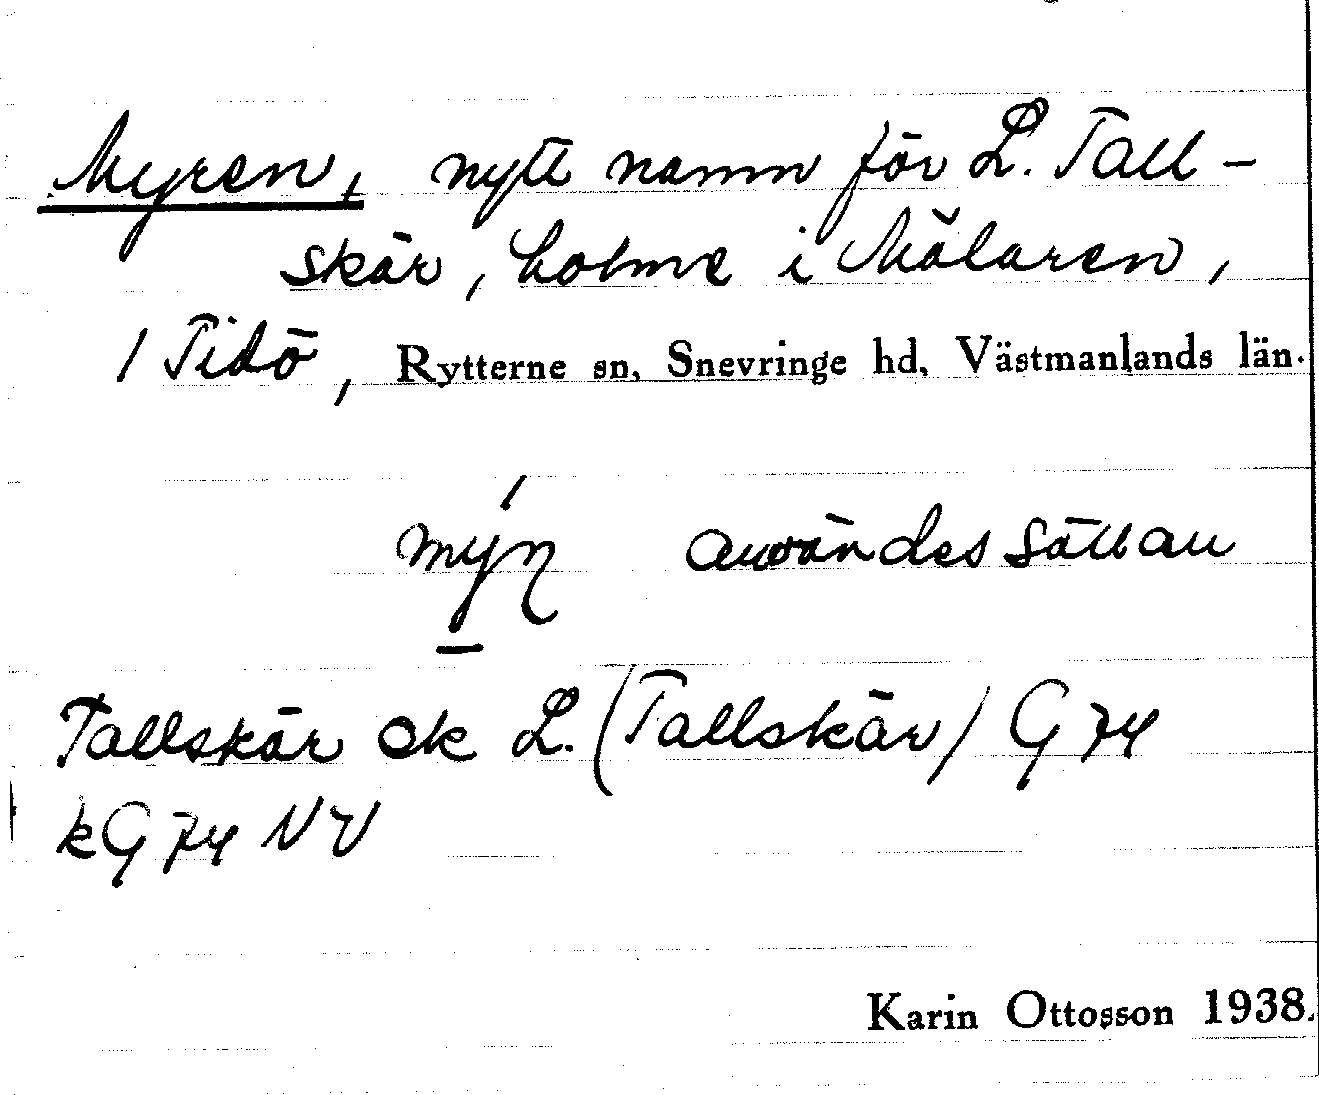 Myren, nytt namn för L. Tall-
skär, holme i Mälaren,
/ Tidö, Rytterne sn, Snevringe hd, Västmanlands län.
användes sällan
Tallskär ok L. (Tallskär) G 74
kG 74 NV
Karin Ottosson 1938.